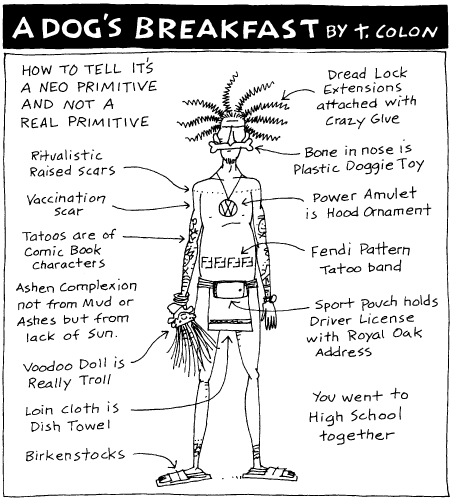 A DOG'S BREAKFAST BY T. COLON
HOW TO TELL IT'S
A NEO PRIMITIVE
AND NOT A
REAL PRIMITIVE
Dread Lock
Extensions
attached with
Crazy Glue
Ritualistic
Raised Scars
Bone in nose is
Plastic Doggie Toy
Vaccination
Scar
Power Amulet
is Hood Ornament
Tatoos are of
Comic Book
characters
Fendi Pattern
Tatoo band
Ashen Complexion
not from Mud or
Ashes but from
lack of Sun.
Sport Pouch holds
Driver License
with Royal Oak
Address
Voodoo Doll is
Really Troll
Loin cloth is
Dish Towel
You went to
High School
together
Birkenstocks